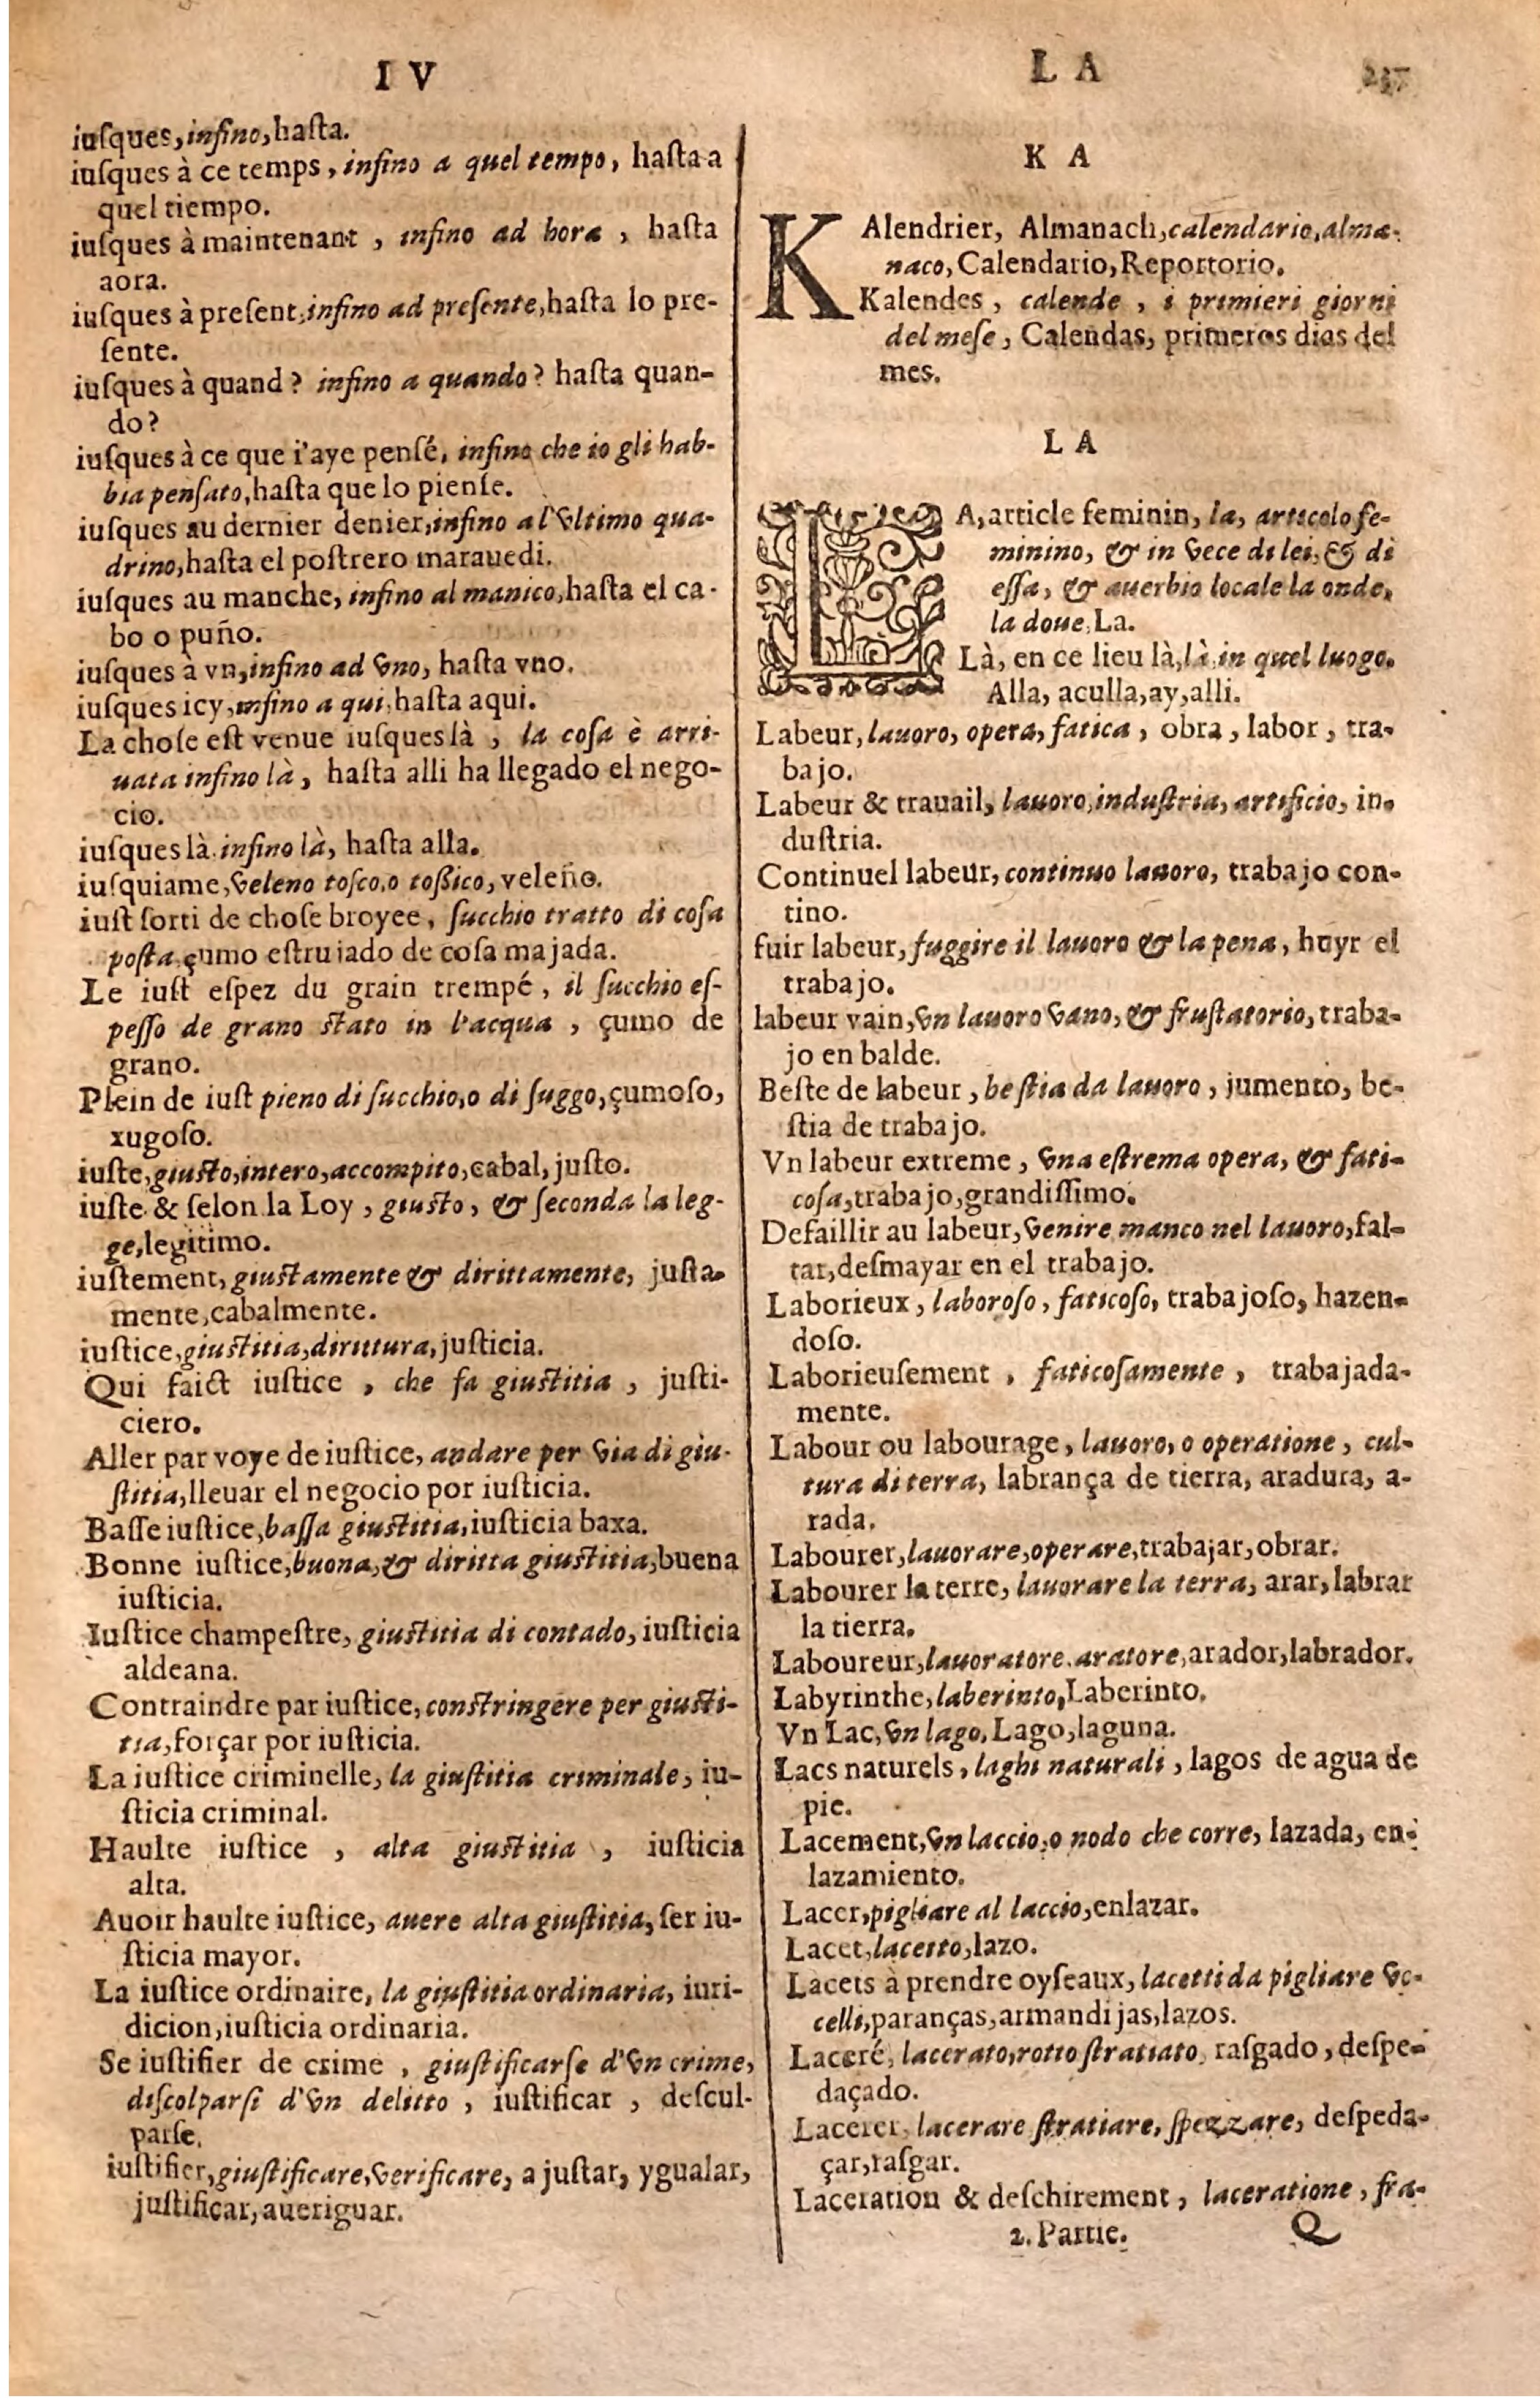 I V
iuſques, infino, haſta.
iuſques à ce temps, infino a quel tempo, haſta a
quel tiempo.
iuſques à maintenant, infino ad hora, haſta
aora.
iuſques à preſent, infino ad preſente, haſta lo pre-
ſente.
iuſques à quand? infino a quando? haſta quan-
do?
iuſques à ce que i'aye penſé, infino che io gli hab-
bia penſato, haſta que lo pienſe.
iuſques au dernier denier, infino al'vltimo qua-
drino, haſta el poſtrero marauedi.
iuſques au manche, infino al manico, haſta el ca-
bo o puño.
iuſques à vn, infino ad vno, haſta vno.
iuſques icy, infino a qui, haſta aqui.
La choſe est venue iuſques là, la coſa è arri-
uata infino là, haſta alli ha llegado el nego-
cio.
iuſques là, infino là, haſta alla.
iuſquiame, veleno toſco, o toßico, veleño.
iuſt ſorti de choſe broyee, ſucchio tratto di coſa
poſta, çumo eſtruiado de coſa majada.
Le iuſt eſpez du grain trempé, il ſucchio eſ-
peſſo de grano ſtato in l'acqua, çumo de
grano.
Plein de iuſt pieno di ſucchio, o di ſuggo, çumoſo,
xugoſo.
iuſte, giuſto, intero, accompito, cabal, juſto.
iuſte & ſelon la Loy, giuſto, & ſeconda la leg-
ge, legitimo.
iuſtement, giuſtamente & dirittamente, juſta-
mente, cabalmente.
iuſtice, giuſtitia, dirittura, juſticia.
Qui faict iuſtice, che fa giuſtitia, juſti-
ciero.
Aller par voye de iuſtice, andare per via di giu-
ſtitia, lleuar el negocio por iuſticia.
Baſſe iuſtice, baſſa giuſtitia, iuſticia baxa.
Bonne iuſtice, buona, & diritta giuſtitia, buena
iuſticia.
Iuſtice champeſtre, giuſtitia di contado, iuſticia
aldeana.
Contraindre par iuſtice, conſtringere per giuſti-
tia, forçar por iuſticia.
La iuſtice criminelle, la giuſtitia criminale, iu-
ſticia criminal.
Haulte iuſtice, alta giuſtitia, iuſticia
alta.
Auoir haulte iuſtice, auere alta giuſtitia, ſer iu-
ſticia mayor.
La iuſtice ordinaire, la giuſtitia ordinaria, iuri-
dicion, iuſticia ordinaria.
Se iuſtifier de crime, giuſtificarſe d'vn crime,
diſcolparſi d'vn delitto, iuſtificar, deſcul-
parſe.
iuſtifier, giuſtificare, verificare, a juſtar, ygualar,
juſtificar, aueriguar.
L A
K A
KAlendrier, Almanach, calendario, alma-
naco, Calendario, Reportorio.
Kalendes, calende, i primieri giorni
del meſe, Calendas, primeros dias del
mes.
L A
LA, article feminin, la, articolo fe-
minino, & in vece di lei, & di
eſſa, & auerbio locale la onde,
la doue, La.
Là, en ce lieu là, là, in quel luogo.
Alla, aculla, ay, alli.
Labeur, lauoro, opera, fatica, obra, labor, tra-
bajo.
Labeur & trauail, lauoro, induſtria, artificio, in-
duſtria.
Continuel labeur, continuo lauoro, trabajo con-
tino.
fuir labeur, fuggire il lauoro & la pena, huyr el
trabajo.
labeur vain, vn lauoro vano, & fruſtatorio, traba-
jo en balde.
Beſte de labeur, beſtia da lauoro, jumento, be-
ſtia de trabajo.
Vn labeur extreme, vna eſtrema opera, & fati-
coſa, trabajo, grandiſſimo.
Defaillir au labeur, venire manco nel lauoro, fal-
tar, deſmayar en el trabajo.
Laborieux, laboroſo, faticoſo, trabajoſo, hazen-
doſo.
Laborieuſement, faticoſamente, trabajada-
mente.
Labour ou labourage, lauoro, o operatione, cul-
tura di terra, labrança de tierra, aradura, a-
rada.
Labourer, lauorare, operare, trabajar, obrar.
Labourer la terre, lauorare la terra, arar, labrar
la tierra.
Laboureur, lauoratore, aratore, arador, labrador.
Labyrinthe, laberinto, Laberinto.
Vn Lac, vn lago, Lago, laguna.
Lacs naturels, laghi naturali, lagos de agua de
pie.
Lacement, vn laccio, o nodo che corre, lazada, en-
lazamiento.
Lacer, pigliare al laccio, enlazar.
Lacet, lacetto, lazo.
Lacets à prendre oyſeaux, lacetti da pigliare vc-
celli, paranças, armandijas, lazos.
Laceré, lacerato, rotto ſtratiato, raſgado, deſpe-
daçado.
Lacerer, lacerare ſtratiare, ſpezzare, deſpeda-
çar, raſgar.
Laceration & deſchirement, laceratione, fra-
2. Partie. Q